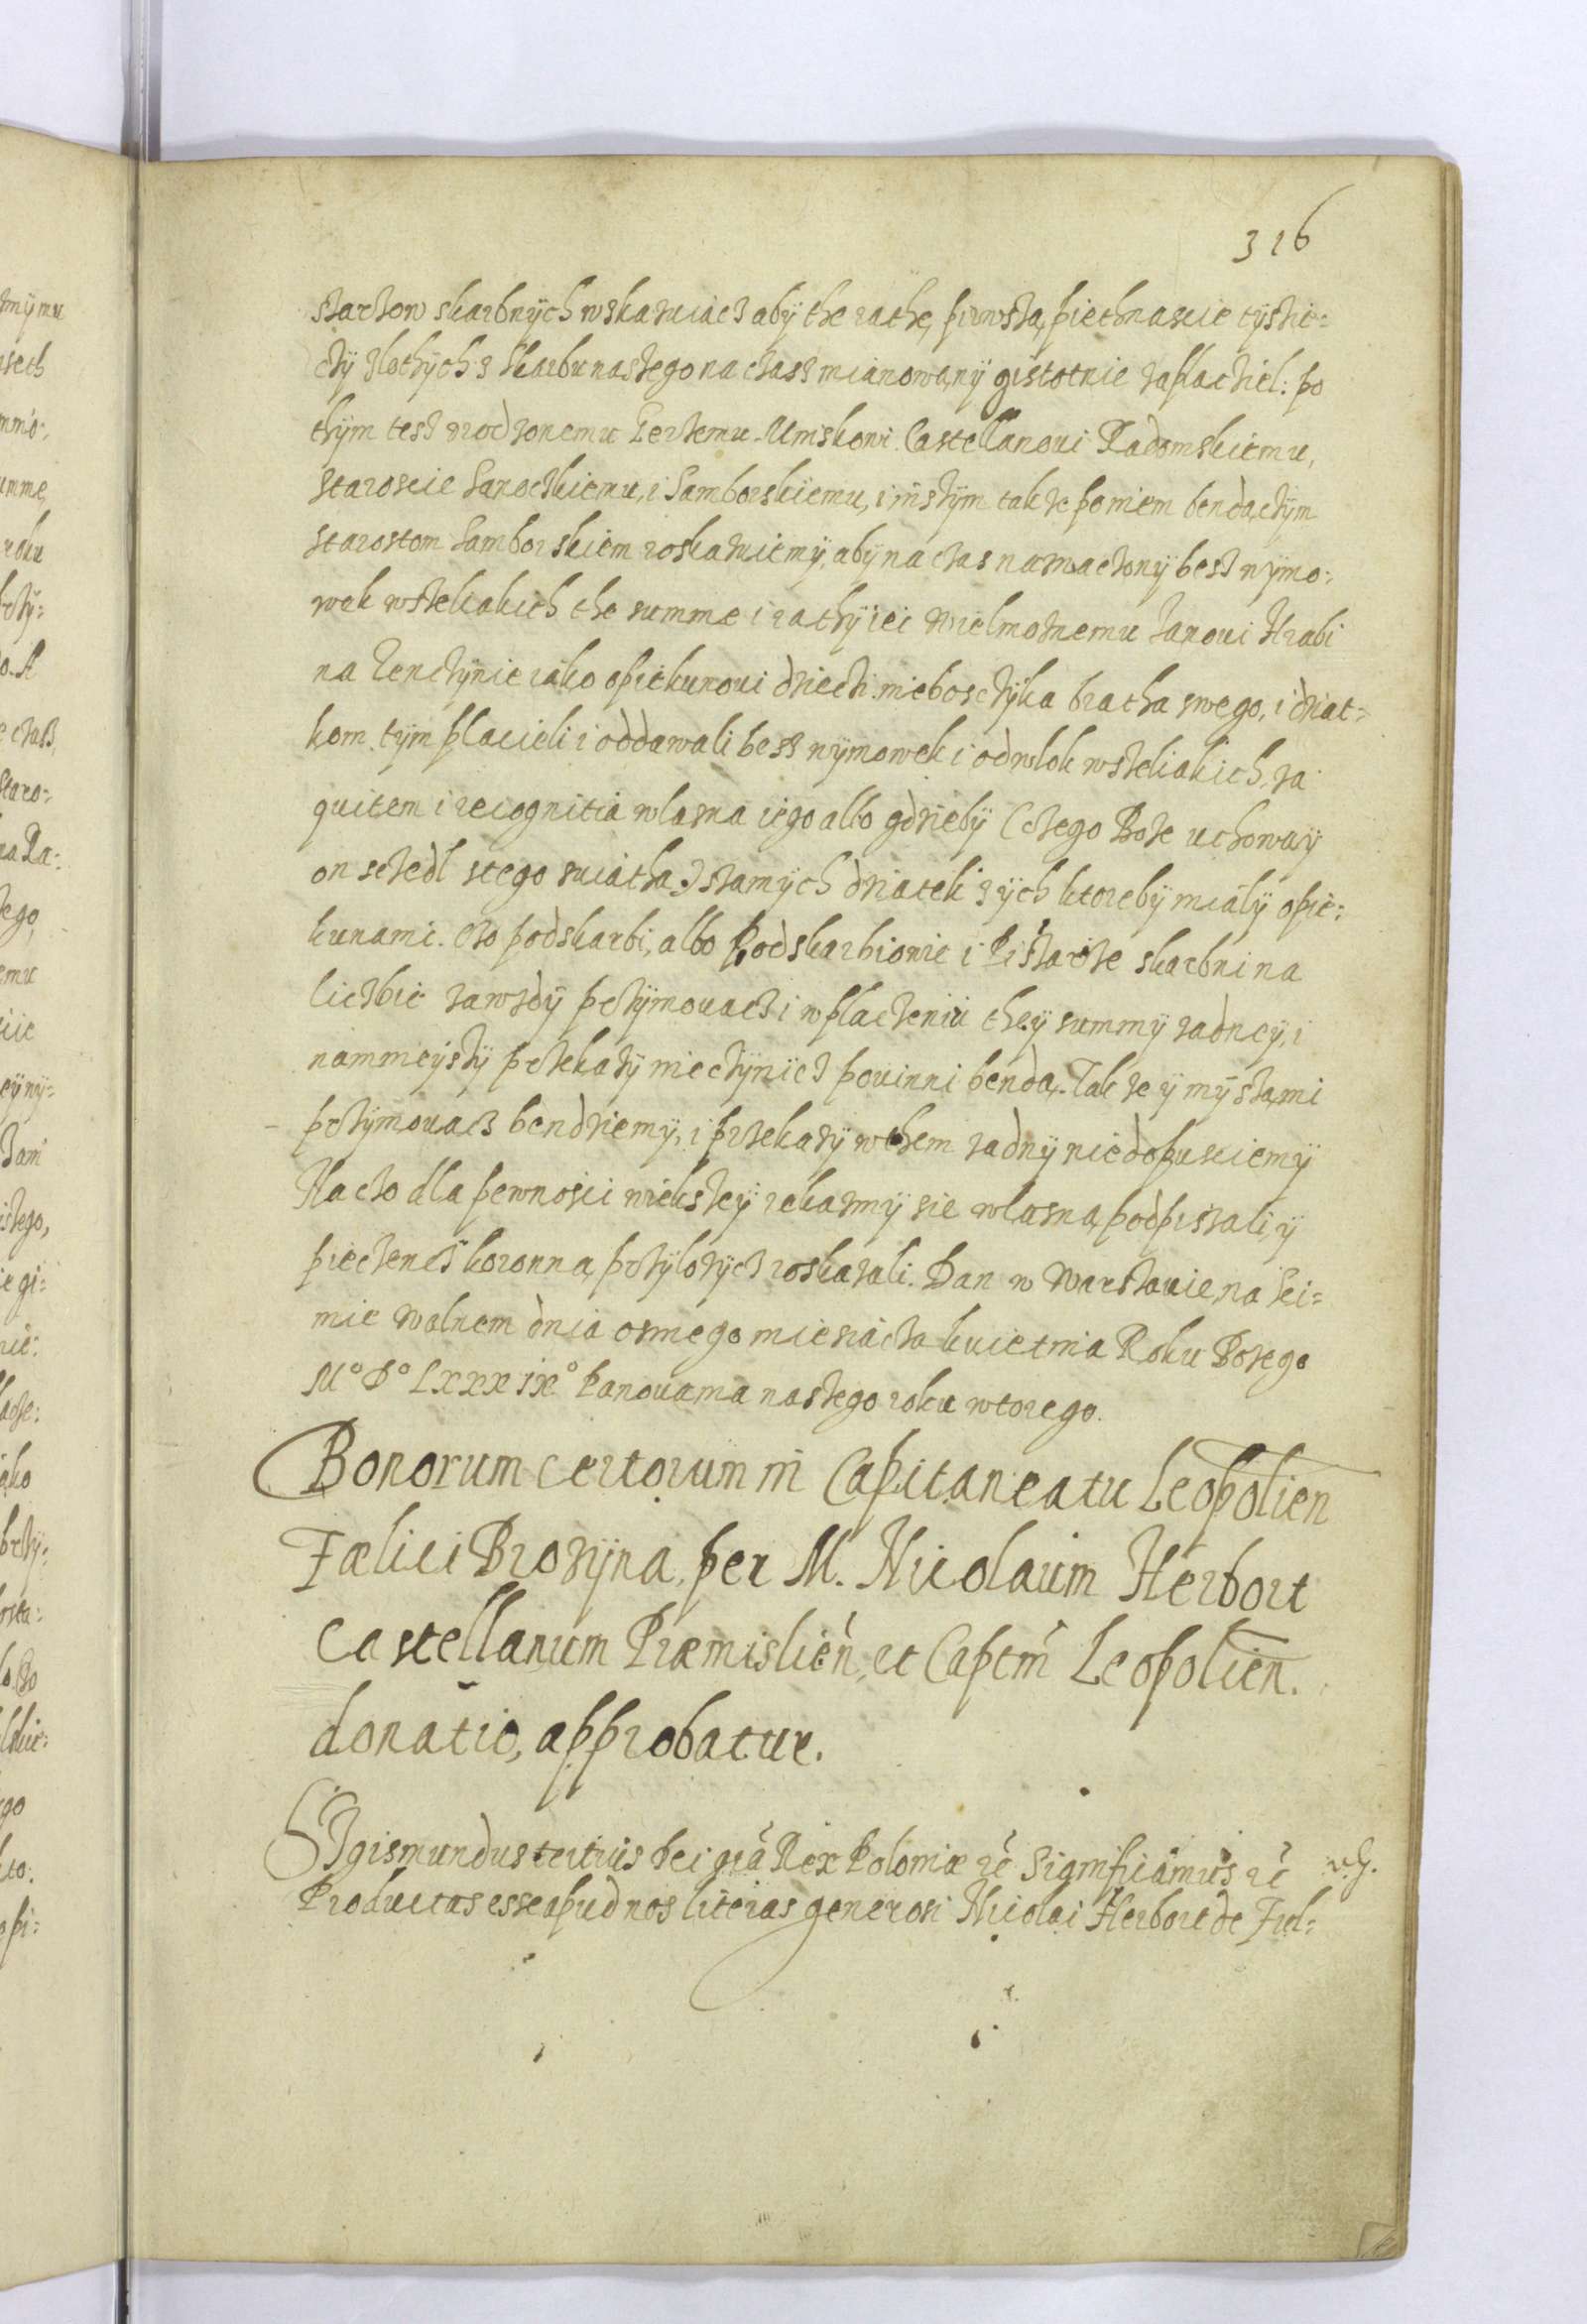 316
szarzow skarbnych wskazuiącz aby the rathę pirwszą piethnascie tysiię=
czy złothych z skarbu naszego na czass mianowany gistotnie zapłacziel: po
thym tesz urodzonemu Jerzemu Mniskowi Castellanoui Radomskiemu,
staroscie Sanoczkiemu, i Samborskiemu, i inszym takze po niem bendączym
starostom Samborskiem roskazuiemy, aby na czas naznaczony besz wymo=
wek wszelkakich the summe i rathy iei wielmoznemu Janoui Hrabi
na Tenczynie iako opiekunoui dzieczi nieboszczyka bratha swego, i dziat=
kom tym placieli i oddawali bessz wymowek i odwlok wszeliakich, za
quitem i recognitią wlasną iego albo gdzieby (czego Boze uchoway
on szczedl stego swiatha) szamych dziatek z ych ktoreby mialy opie=
kunami. Czo podskarbi, albo Podskarbiowie i Piszarze skarbni na
liczbie zawzdy przymouacz i w placzeniu they summy zadney, i
namnieyszy przekazy nie czynicz powinni bendą. Takze y my szami
przymouacz bendziemy, i przekazy w them zadny nie dopusciemy
Na czo dla pewnosci wiekszey rekąsmy sie wlasną podpiszali, y
pieczencz koronną przylozycz roskazali. Dan w Warszauie na sei=
mie walnem dnia osmego miesiącza kwietnia Roku Bozego
M° D° Lxxx ix° Panouania naszego roku wtorego.
Bonorum certorum in Capitaneatu Leopolien
Fælici Brozyna, per M. Nicolaum Herbort
Castellanum Præmislien, et Captm Leopolien.
donatio, approbatur.
Sigismundus tertius Dei gra Rex Poloniæ rc Significamus rc
Productas esse apud nos literas generosi Nicolai Herbort de Ful=